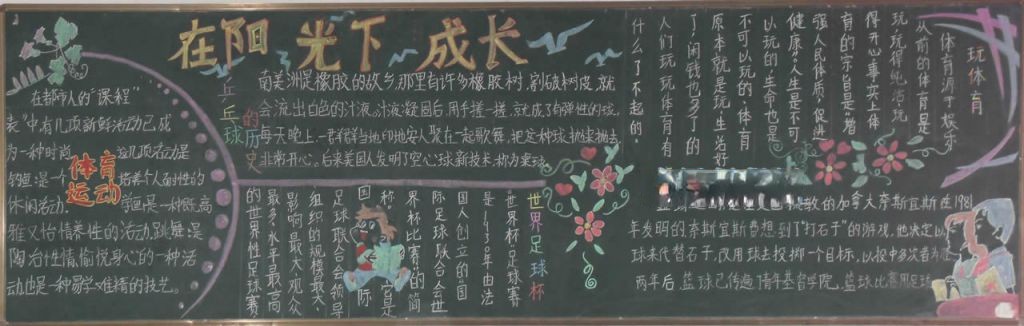 在阳光下成长
在都市人的"课程
表"中有几项新鲜活动已成
为一种时尚。这几项活动是
体育
运动
休闲活动。
雅又怡情养性的活动。跳舞是
陶冶性情愉悦身心的一种活
动也是一种易学难精的技艺。
乒乓球的历史
南美洲是橡胶的故乡,那里有许多橡胶树,割破树皮,就
会流出白色的汁液。汁液凝固后,用手搓一搓,就成了有弹性的球。
每天晚上一群群当地印地安人聚在一起歌舞,把这种球抛来抛去
非常开心。后来美国人发明了空心球新技术,称为乒球。
世界足球杯
"世界杯"足球赛
是1930年由法
国人创立的。国
际足球联合会世
界杯比赛的简
称
国际
足球联合会领导
组织的规模最大、
影响最大、观众
最多、水平最高
的世界性足球赛
玩体育
体育源于娱乐
从前的体育是
玩,玩得电活玩
得开心。事实上体
育的宗旨是"增
强人民体质,促进
健康。"人生是不可
以玩的,生命也是
不可以玩的,体育
原本就是玩,生活好
了,闲钱也多了的
人们玩玩体育有
什么了不起的。
的加拿大奈斯宜斯在1981
年发明的。奈斯宜斯曾想到了"打石子"的游戏,他决定以
球来代替石子,仅用球去投掷一个目标,以投中多次者为
两年后,篮球已传遍了青年基督学院,篮球比赛用足球